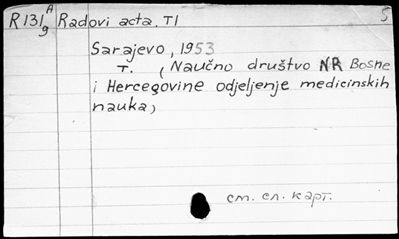 R131 A Radovi acta. T1 5
9
Sarajevo, 1953
T. (Naučno društvo NR Bosne
i Hercegovine odjeljenje medicinskih
nauka)
см. сл. карт.